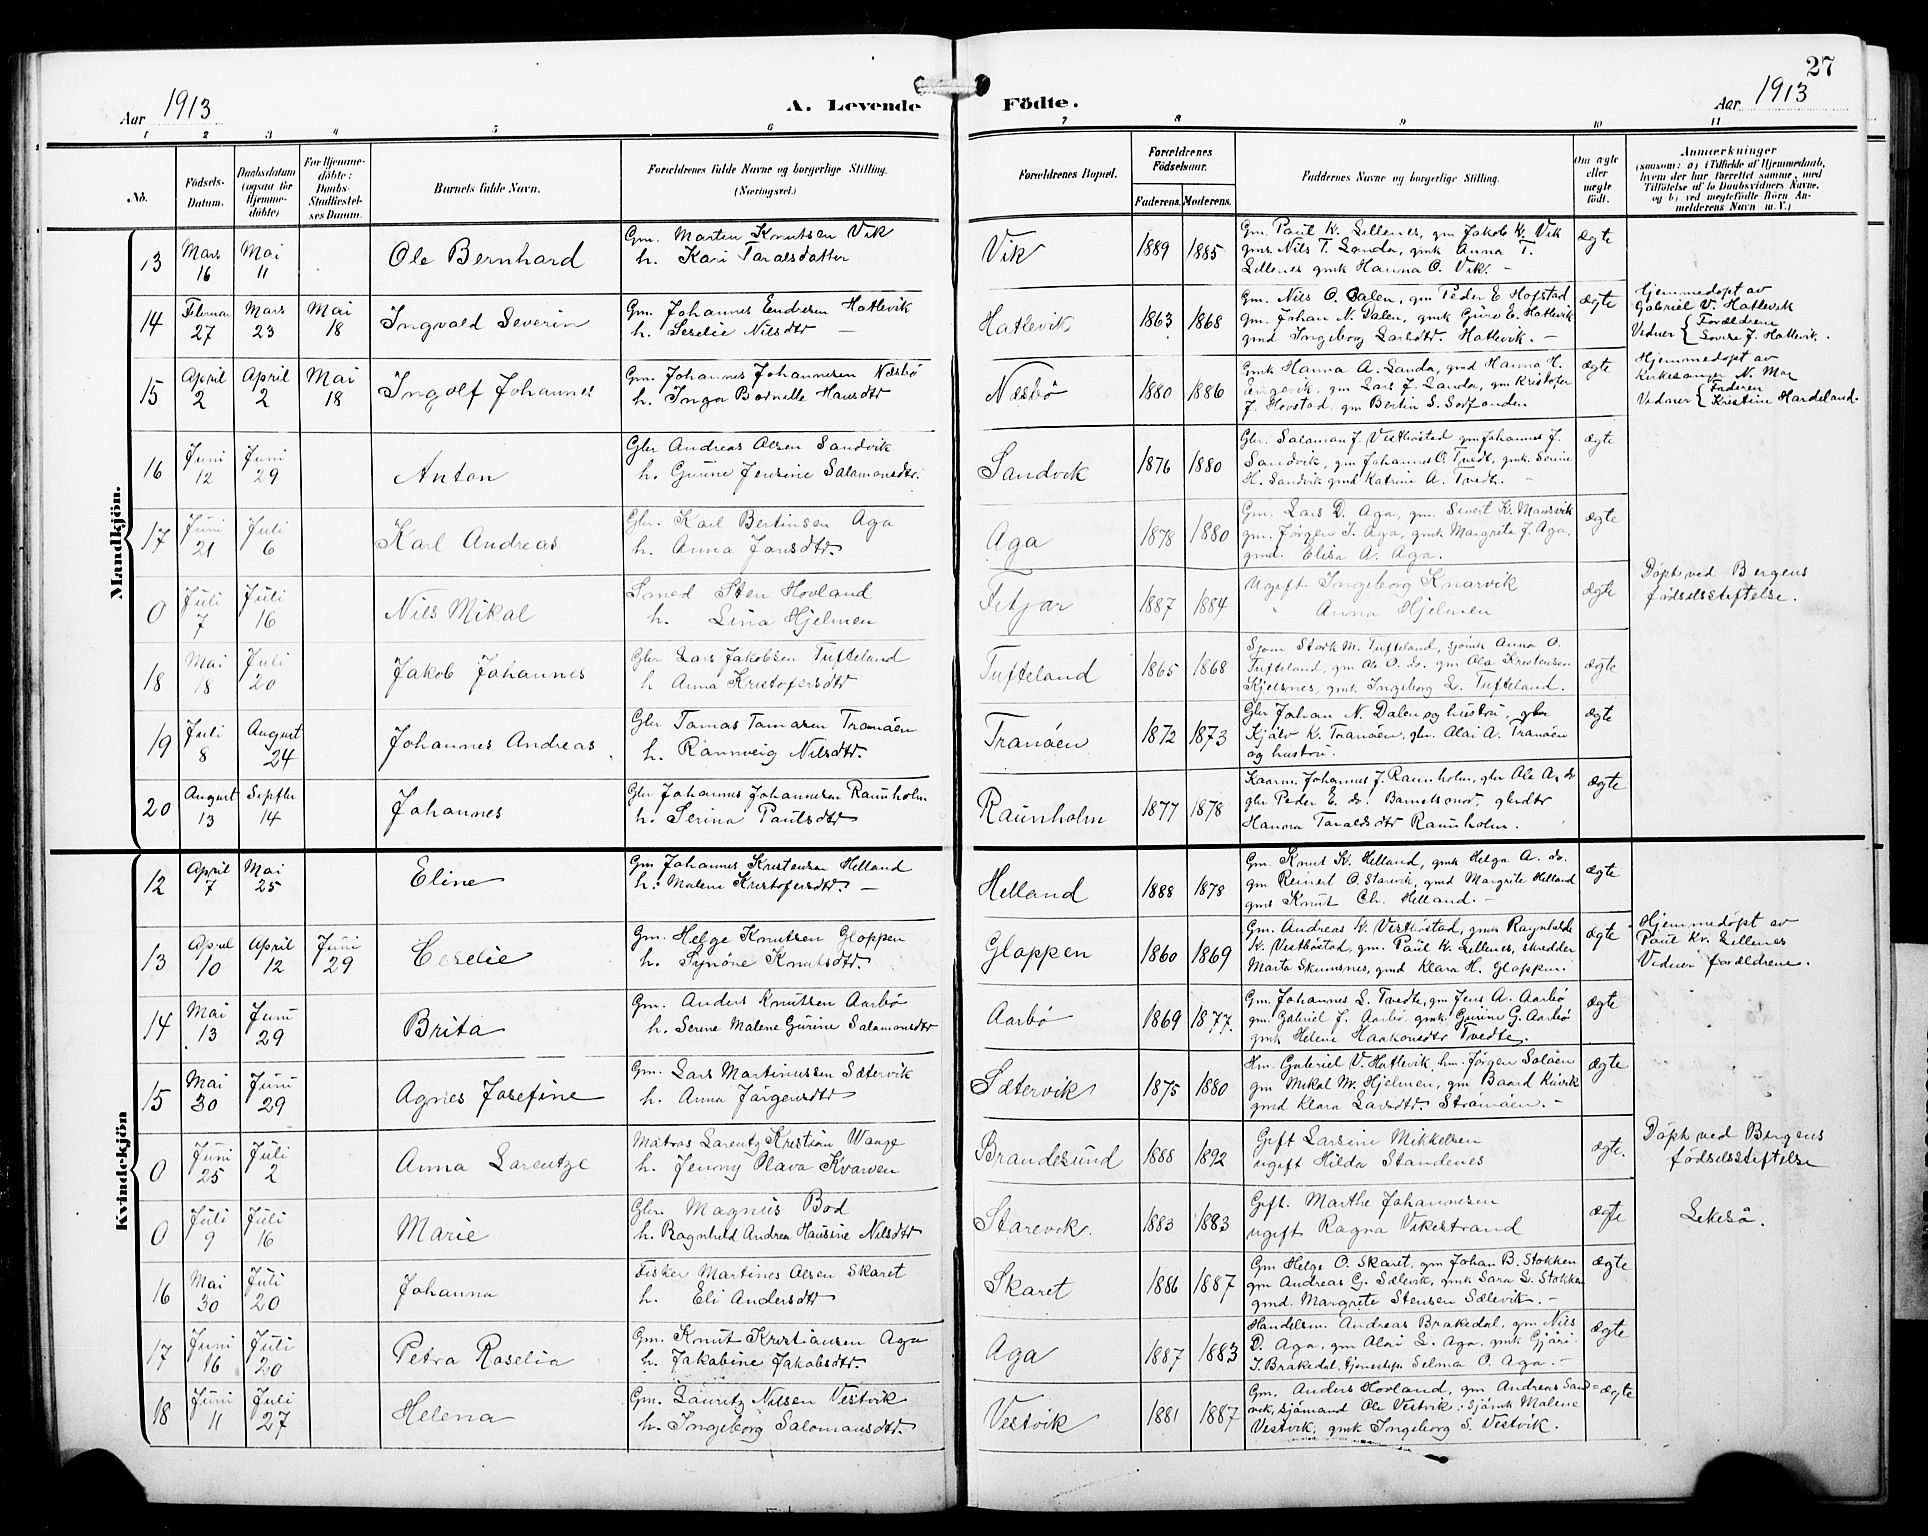 27
Aar 1913
A. Levende Födte.
Aar 1913
1 2 3 4 5 6 7 8 9 10 11
No.
Födsels-Datum.
Daabsdatum (ogsaa for Hjemme-döbte)
For Hjemme-döbte: Daabs-Stadfæstel-ses Datum.
Barnets fulde Navn.
Forældrenes fulde Navne og borgerlige Stilling. (Næringsvei.)
Forældrenes Bopæl.
Forældrenes Födselsaar. Faderens. Moderens.
Faddernes Navne og borgerlige Stilling.
Om ægte eller uægte födt.
Anmærkninger
(saasom: a) i Tilfælde af Hjemmedaab, hvem der har forrettet samme, med Tilföielse af to Daabsvidners Navne, og b) ved uægtefödte Börn An-melderens Navn m. V.)
Mandkjön.
13 Mars 16 Mai 11 Ole Bernhard
Gm. Martin Knutsen Vik
h. Kari Taralsdatter
Vik 1889 1885
Gm. Paul K. Lillenes, gm Jakob K. Vik
gms Nils T. Landa, gmk Anna T.
Lillenes gmk Hanna O. Vik. -
ægte
14 Februar 27 Mars 23 Mai 18 Ingvald Severin
Gm. Johannes Endresen Hatlevik
h. Seselie Nilsdtr -
Hatlevik 1863 1868
Gm. Nils O. Dalen, gm Peder E Hofstad,
gm. Johan N. Dalen, gmk Guro E. Hatlevik
gmd Ingeborg Larsdtr. Hatlevik. -
ægte
Hjemmedöpt av
Gabriel V. Hatlevik
Vidner { Forældrene
Lovise J. Hatlevik.
15 April 2 April 2 Mai 18 Ingolf Johannes
Gm. Johannes Johannesen Næsbö
h. Inga Bornelle Hansdtr
Næsbö 1880 1886
Gmk Hanna A. Landa, gmd Hanna H.
Engevik, gm Lars J. Landa, gm Kristofer
J. Hovstad, gm Bertin S. Sorfonden
ægte
Hjemmedöpt av
Kirkesanger N. Mo
Vidner { Faderen
Kristine Hardeland.
16 Juni 12 Juni 29 Anton
Gbr Andreas Olsen Sandvik
h. Gurine Jensine Salamonsdtr.
Sandvik 1876 1880
Gbr. Salaman J. Vestbøstad gm Johannes J.
Sandvik, gm Johannes O. Tvedt, gmk Serine
H. Sandvik gmd Katrine A. Tvedt. -
ægte
17 Juni 21 Juli 6 Karl Andreas
Gbr. Karl Bertinsen Aga
h. Anna Jansdtr.
Aga 1878 1880
Gm. Lars D. Aga, gm. Sivert K. Mausvik
gm. Jørgen I. Aga, gmk Margreta J. Aga,
gmd. Elisa A. Aga.
ægte
0 Juli 7 Juli 16 Nils Mikal
Smed Sten Hovland
h. Lina Hjelmen
Fitjar 1887 1884
Ugift Ingeborg Knarvik
" Anna Hjelmen
ægte
Döpt ved Bergens
födselsstiftelse.
18 Mai 18 Juli 20 Jakob Johannes
Gbr Lars Jakobsen Tufteland
h Anna Kristofersdtr
Tufteland 1865 1868
Sjöm Stark M. Tufteland, sjömk Anna O.
Tufteland, gm Ole O. do. gm Ola Kristensen
Kjelsnes, gmk Ingeborg L. Tufteland.
ægte
19 Juli 8 August 24 Johannes Andreas
Gbr Tomas Tomasen Tranöen
h. Rannveig Nilsdtr.
Tranöen 1872 1873
Gbr Johan N. Dalen og hustru, gbr
Kjälv K. Tranöen, gbr. Alai A. Tranöen
og hustru.
ægte
20 August 13 Septbr 14 Johannes
Gbr Johannes Johannesen Raunholm
h. Serina Paulsdtr
Raunholm 1877 1878
Kaarm. Johannes J. Raunholm, gbr Ole A. do
gbr Peder E. do. Barnets mor, gbrdtr
Hanna Taraldsdtr Raunholm.
ægte
Kvindekjön
12 April 7 Mai 25 Eline
Gm Johannes Kristensen Helland
h: Malene Kristofersdtr. -
Helland 1888 1878
Gm. Knut K. Helland, gmk Helga A. do.
gm Reinert O. Starevik, gmd Margrite Helland
gms Knut Ch. Helland. -
ægte
13 April 10 April 12 Juni 29 Ceselie
Gm. Helge Knutsen Gloppen
h. Synöne Knutsdtr.
Gloppen 1860 1869
Gm. Andreas K. Vestbøstad, gmk Ragnhilda
K. Vestbøstad, gm. Paul K. Lillenes, skrædder
Marta Skumsnes, gmd Klara H. Gloppen.
ægte
Hjemmedöpt av
Paul Kn. Lillenes
Vidner forældrene.
14 Mai 13 Juni 29 Brita
Gm. Anders Knutsen Aarbö
h. Serene Malene Gurine Salamonsdtr
Aarbö 1869 1877.
Gm. Johannes L. Tvedte, gm Jens A. Aarbö
gm. Gabriel J. Aarbö gmk. Gurine G. Aarbö
gmk Helene Haakonsdtr Tvedte.
ægte
15 Mai 30 Juni 29 Agnes Josefine
Gm. Lars Martinussen Sætervik
h. Anna Jörgensdtr
Sætervik 1875 1880
Hm. Gabriel V. Hatlevik, hm. Jörgen Solöen
gm Mikal M. Hjelmen, gm Baard Knivik
gmd Klara Larsdtr. Strömöen. -
ægte
0 Juni 25 Juli 2 Anna Larentze
Matros Larentz Kristian Wange
h. Jenny Olava Kvarven
Brandesund 1888 1892
Gift Larsine Mikkelsen
ugift Hilda Standenes
ægte.
Döpt ved Bergens
födselsstiftelse
0 Juli 9 Juli 16 Marie
Gbr. Magnus Bod
h. Ragnhild Andrea Hansine Nilsdtr
Starevik. 1883 1883
Gift. Marthe Johannesen
ugift Ragna Vikestrand
ægte
Leksö.
16 Mai 30 Juli 20 Johanna
Fisker Martines Olsen Skaret
h. Eli Andersdtr
Skaret 1886 1887
Gm Helge O. Skaret, gm Johan B. Stokken
gm Andreas G. Sælevik, gmk Sara L. Stokken
gmd. Margrete Stensen Sælevik. -
ægte
17 Juni 16 Juli 20 Petra Roselia
Gm. Knut Kristiansen Aga
h. Jakobine Jakobsdtr.
Aga 1887 1883
Handelsm. Andreas Brakedal, gm Nils
D. Aga, gm Alai L. Aga, gmk Gjöri
I. Brakedal, tjenestep. Selma O. Aga. -
ægte
18 Juni 11 Juli 27 Helena
Gm. Lauritz Nilsen Vestvik
h. Ingeborg Salomansdtr.
Vestvik 1881 1887
Gm. Anders Hovland, gm Andreas Sand=
vik, sjömand Ole Vestvik, sjömk Malene
Vestvik, gmk Ingeborg S. Vestvik.
ægte